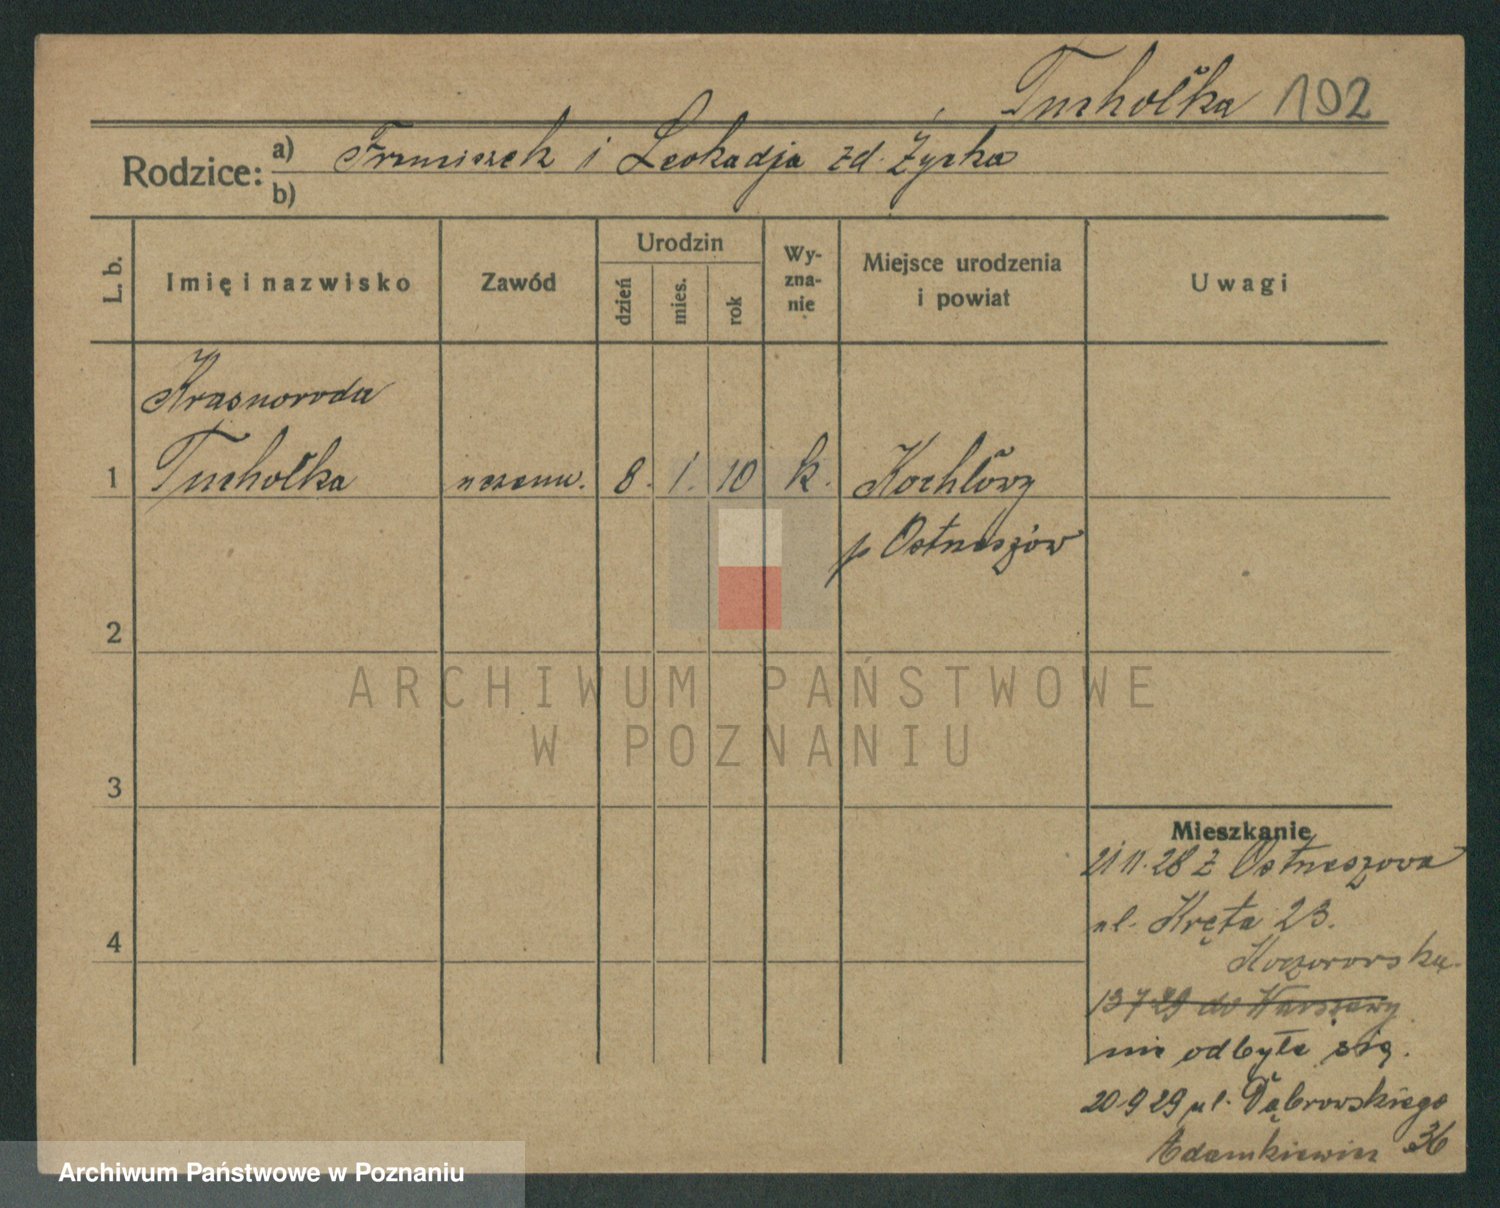 Tuchołka 192
Rodzice: a) Franciszek i Leokadja zd. Życka
b)
L. b. Imię i nazwisko Zawód Urodzin dzień mies. rok Wy-zna-nie Miejsce urodzenia i powiat Uwagi
Krasnoroda
1 Tuchołka uczenn. 8. 1. 10 k. Kochłowy
p Ostrzeszów
2
ARCHIWUM PAŃSTWOWE
W POZNANIU
3
Mieszkanie
21 11. 28 z Ostrzeszowa
ul. Kręta 23.
4
13 7 29 do Warszawy
nie odbyła się.
20 9 29 ul. Dąbrowskiego
Adamkiewicz 36
Archiwum Państwowe w Poznaniu